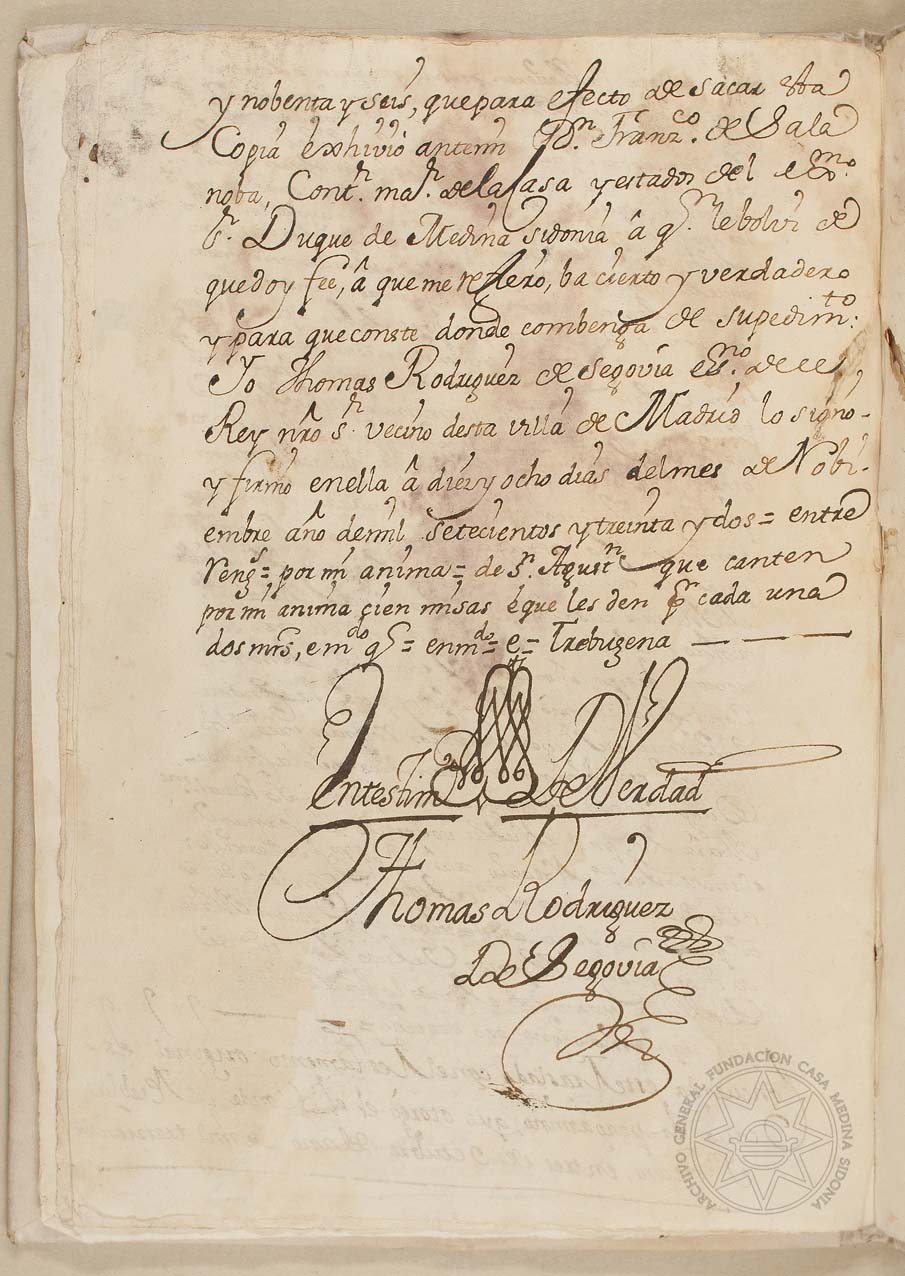 y nobenta y seis, que para efecto de sacar esta
Copia exhivió antemi Dn. Franzco. de Sala
noba, Contr. mar. de la Casa y estados del exmo.
sr. Duque de Medina sidonia â qn. le bolvi de
que doy feé, â que me refiero, ba cierto y verdadero
y para que conste donde combenga de supedimto:
Yo Thomas Rodriguez de Segovia esno. del
Rey nro sr. vecino desta villa de Madrid lo signo
y firmo en ella â diez y ocho dias del mes de Nobi-
embre año de mil setecientos y treinta y dos = entre
rengs = por mi anima = de sn. Agustn que canten
por mi anima çien misas é que les den pr cada una
dos mrs, emdo q = enmdo = e = Trebuxena
En testim de Verdad
Thomas Rodriguez
de Segovia
ARCHIVO GENERAL FUNDACIÓN CASA MEDINA SIDONIA